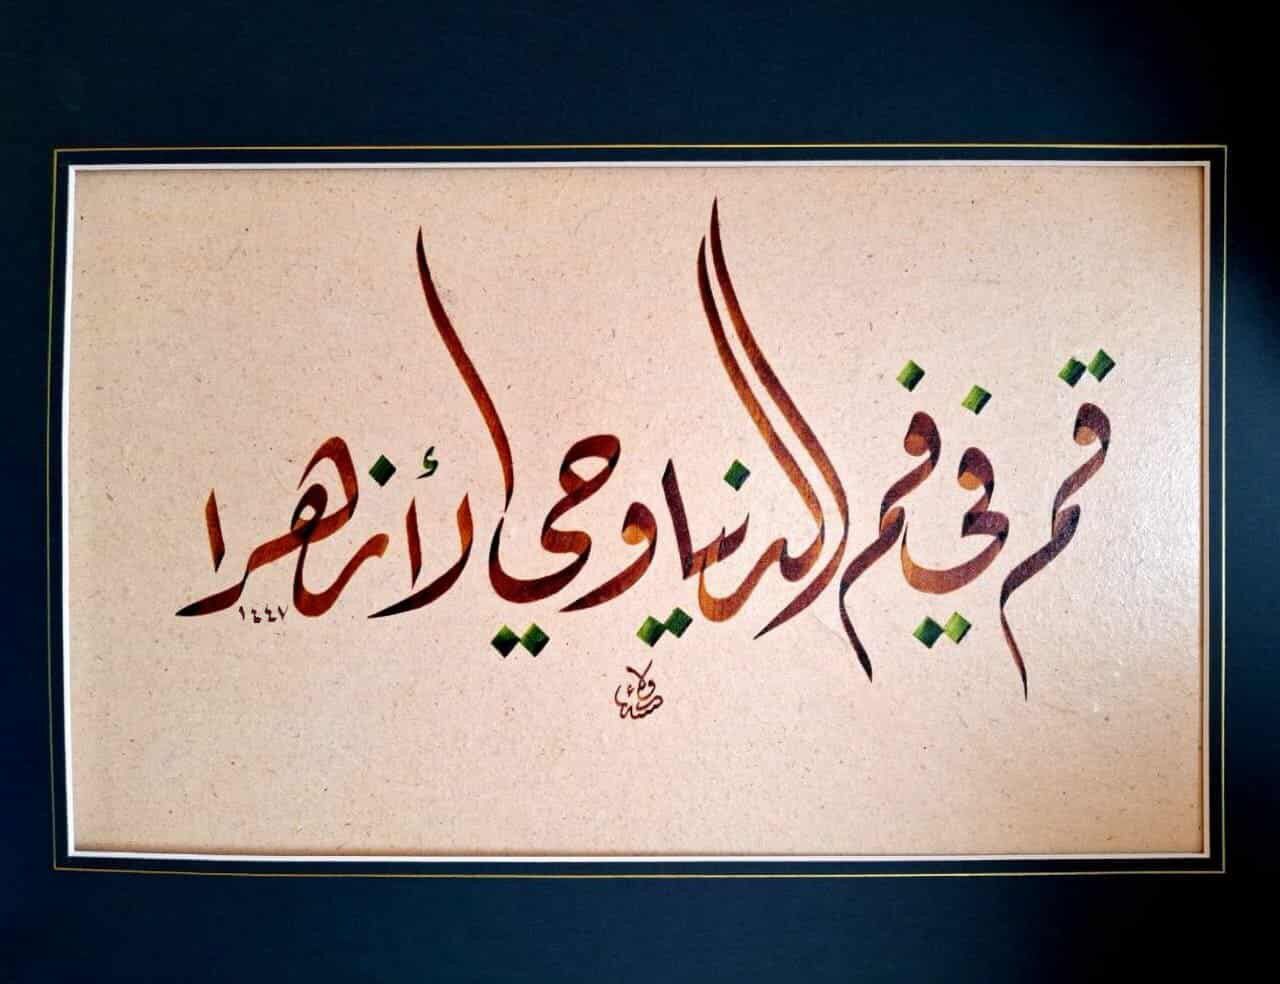 قم في فم الدنيا وحي الأزهرا
١٤٤٧
ولاء